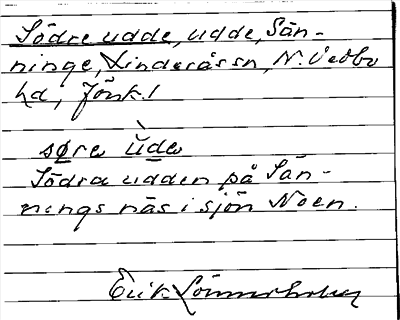 Södre udde, udde, Sän-
ninge, Linderås sn, N. Vedbo
hd, Jönk.l
søre ùde
Södra udden på Sän-
nings näs i sjön Noen.
Erik